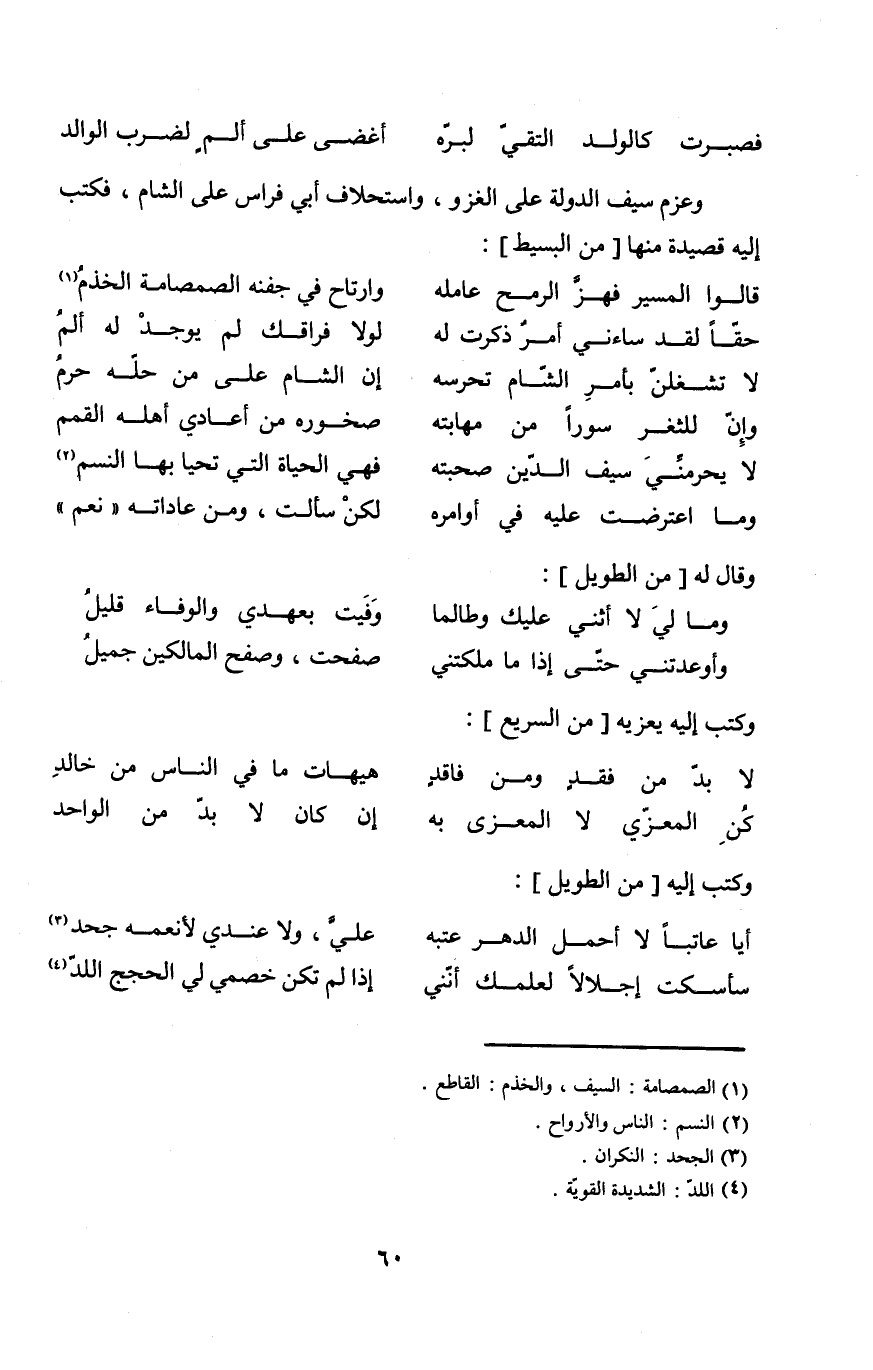 فصبرت كالولد التقيّ لبرّه أغضى على ألمٍ لضرب الوالد
وعزم سيف الدولة على الغزو ، واستحلاف أبي فراس على الشام ، فكتب
إليه قصيدة منها [ من البسيط ] :
قالوا المسير فهزَّ الرمح عامله وارتاح في جفنه الصمصامة الخذمُ(١)
حقّاً لقد ساءني أمرُ ذكرت له لولا فراقك لم يوجدْ له ألمُ
لا تشغلنّ بأمرِ الشّام تحرسه إن الشام على من حلّه حرمُ
وإنّ للثغر سوراً من مهابته صخوره من أعادي أهله القمم
لا يحرمنَّيَ سيف الدّين صحبته فهي الحياة التي تحيا بها النسم(٢)
وما اعترضت عليه في أوامره لكنْ سألت ، ومن عاداته « نعم »
وقال له [ من الطويل ] :
وما ليَ لا أثني عليك وطالما وَفَيت بعهدي والوفاء قليلُ
وأوعدتني حتّى إذا ما ملكتني صفحت ، وصفح المالكين جميلُ
وكتب إليه يعزيه [ من السريع ] :
لا بدّ من فقدٍ ومن فاقدٍ هيهات ما في الناس من خالدِ
كُنِ المعزّي لا المعزى به إن كان لا بدّ من الواحد
وكتب إليه [ من الطويل ] :
أيا عاتباً لا أحمل الدهر عتبه عليَّ ، ولا عندي لأنعمه جحد(٣)
سأسكت إجلالاً لعلمك أنّني إذا لم تكن خصمي لي الحجج اللدّ(٤)
(١) الصمصامة : السيف ، والخذم : القاطع .
(٢) النسم : الناس والأرواح .
(٣) الجحد : النكران .
(٤) اللدّ : الشديدة القويّة .
٦٠